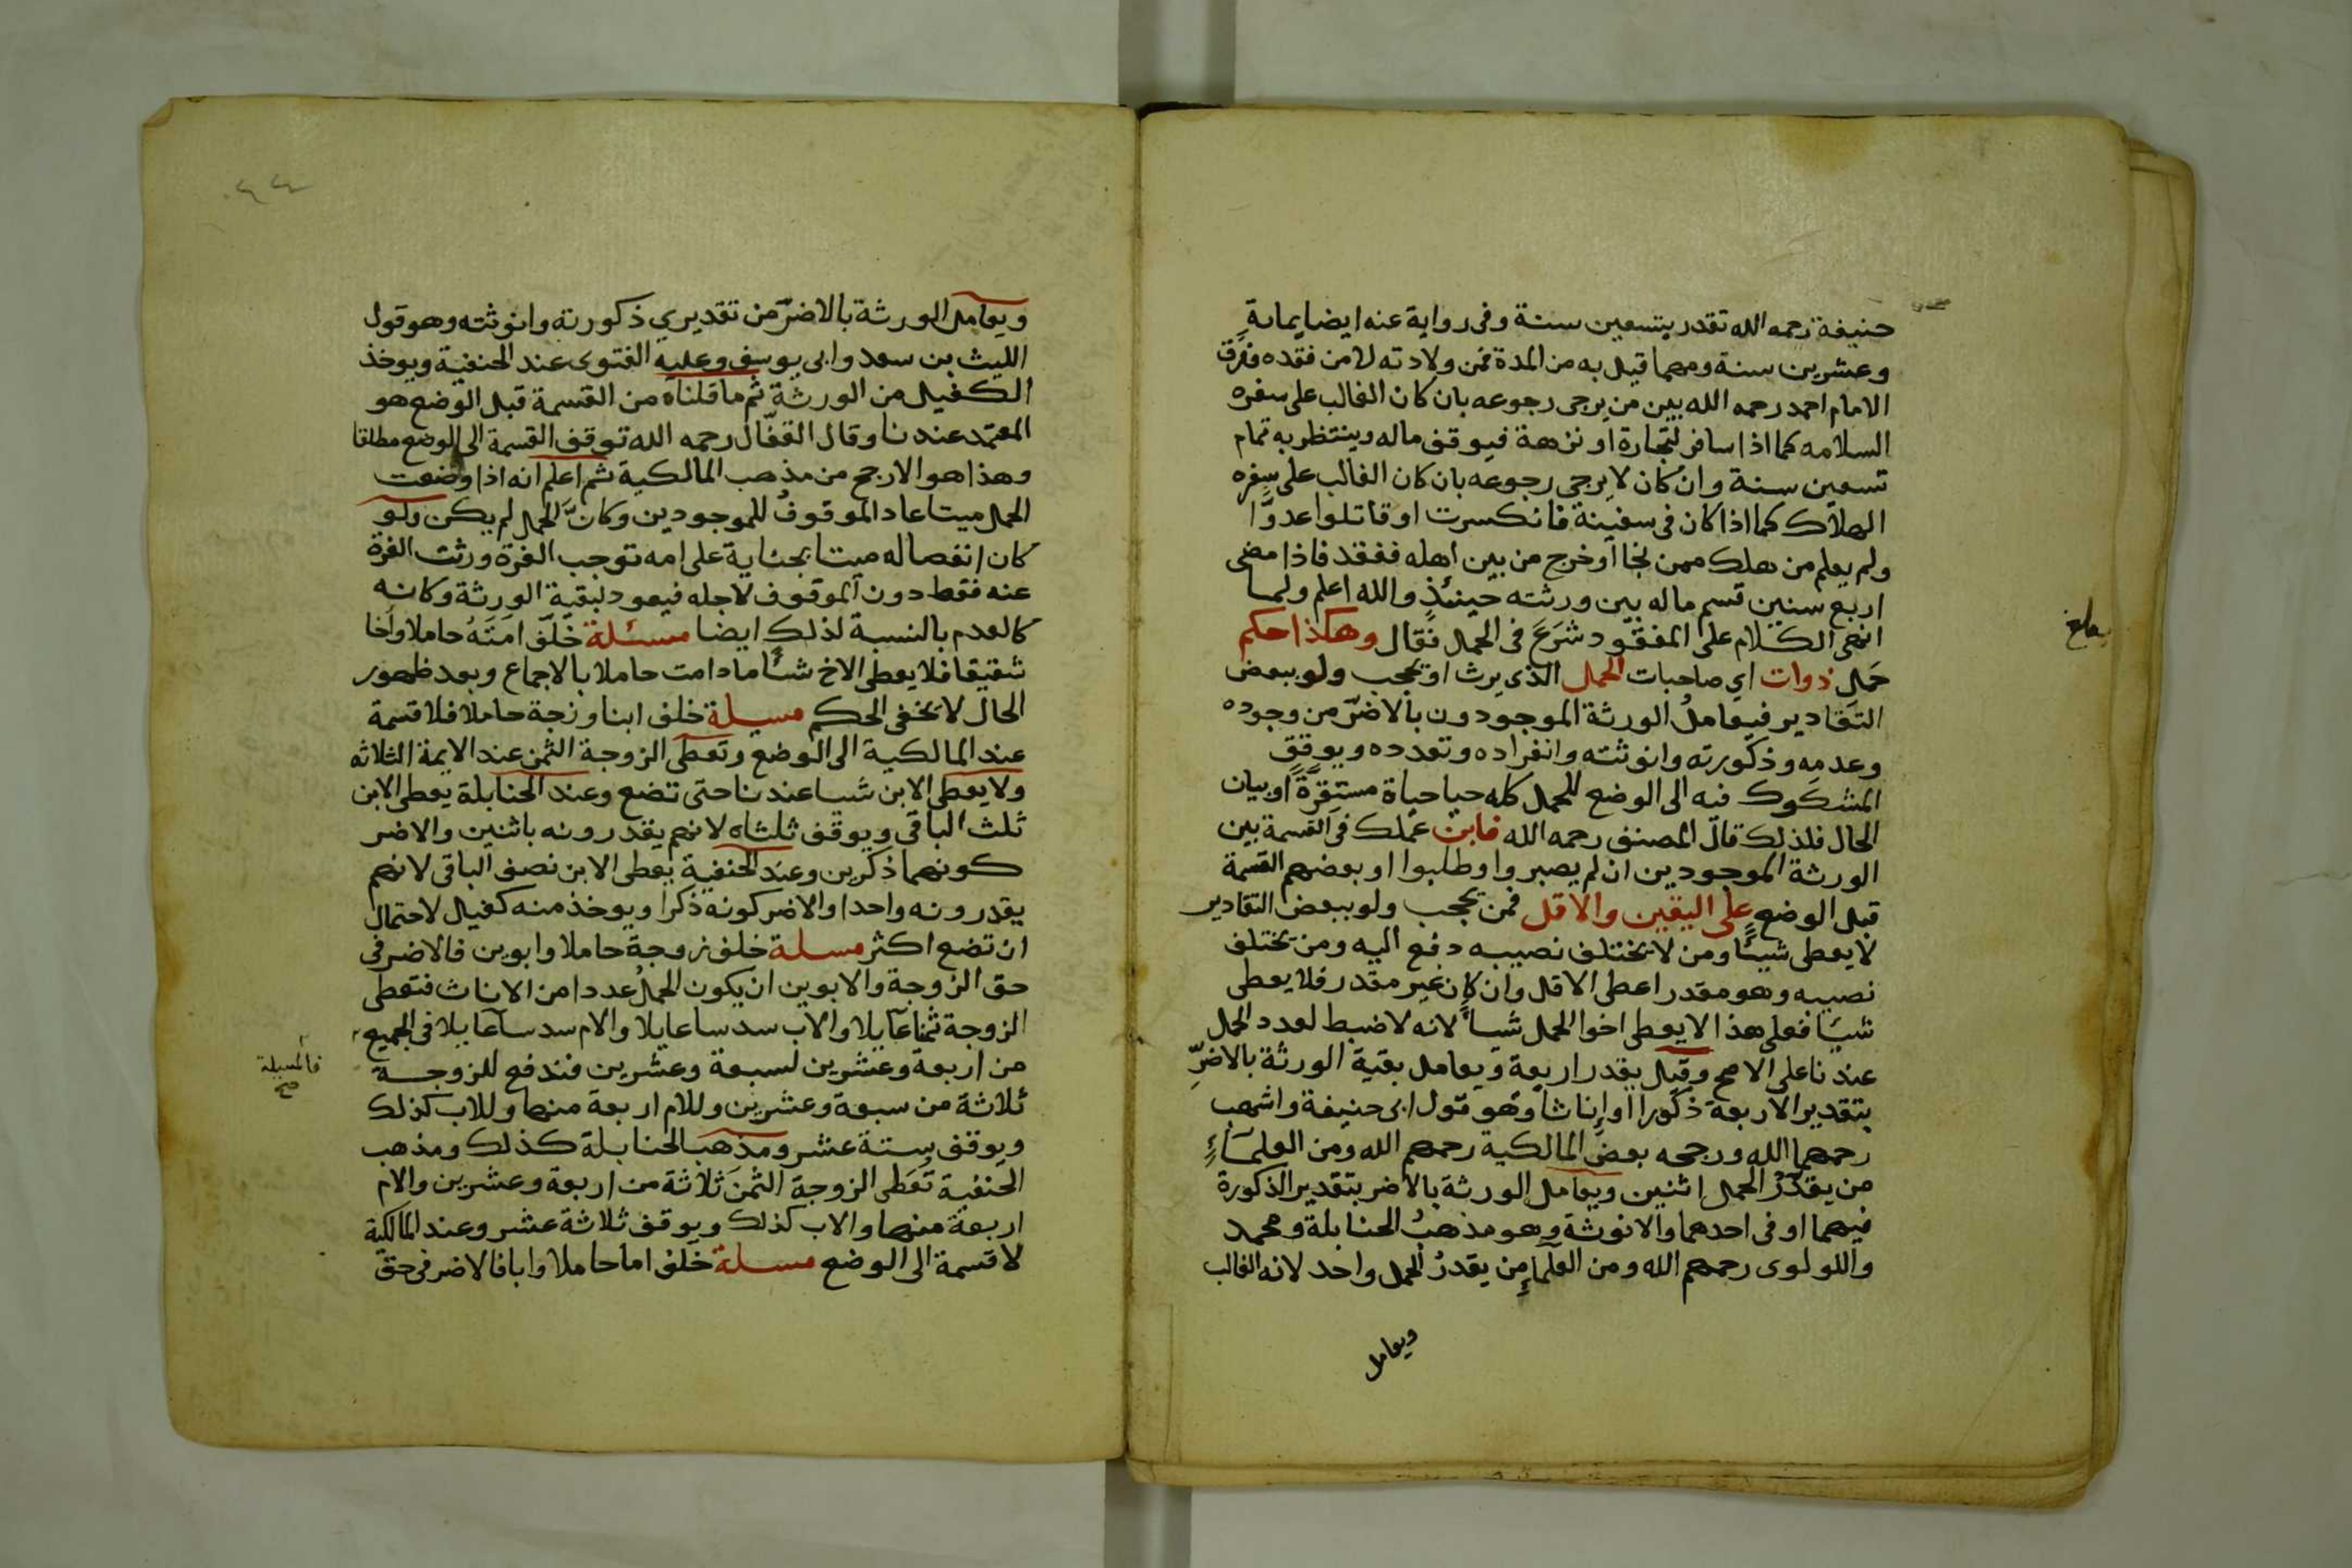 حنيفة رحمه الله تقدر بتسعين سنة وفى رواية عنه ايضا بماية
وعشرين سنة ومهما قيل به من المدة فمن ولادته لا من فقده وفرق
الامام احمد رحمه الله بين من يرجى رجوعه بان كان الغالب على سفره
السلامه كما اذا سافر لتجارة او نزهة فيوقف ماله وينتظر به تمام
تسعين سنة وان كان لا يرجى رجوعه بان كان الغالب على سفره
الهلاك كما اذا كان فى سفينة فانكسرت او قاتلوا عدوّا
ولم يعلم من هلك ممن نجا او خرج من بين اهله ففقد فاذا مضى
اربع سنين قسم ماله بين ورثته حينئذٍ والله اعلم ولما
انهى الكلام على المفقود شَرَعَ فى الحمل فقال وهكذا حكم
حَمل ذوات اي صاحبات الحمل الذى يرث او يحجب ولو ببعض
التقادير فيعاملُ الورثة الموجودون بالاضرّ من وجوده
وعدمه وذكورته وانوثته وانفراده وتعدده ويوقف
المشكوك فيه الى الوضع للحمل كله حيا حياة مستقرّة او بيان
الحال فلذلك قال المصنف رحمه الله فابن عملك فى القسمة بين
الورثة الموجودين ان لم يصبروا وطلبوا او بعضهم القسمة
قبل الوضع على اليقين والاقل فمن يحجب ولو ببعض التقادير
لا يعطى شيئًا ومن لا يختلف نصيبه دفع اليه ومن يختلف
نصيبه وهو مقدر اعطى الاقل وان كان غير مقدر فلا يعطى
شيئا فعلى هذا لا يعطى اخوا الحمل شيأً لانه لا ضبط لعدد الحمل
عندنا على الاصح وقيل يقدر اربعة ويعامل بقية الورثة بالاضرِّ
بتقدير الاربعة ذكورا او اناثا وهو قول ابى حنيفة واشهب
رحمهما الله ورجحه بعض المالكية رحمهم الله ومن العلماءِ
من يقدّر الحمل اثنين ويعامل الورثة بالاضر بتقدير الذكورة
فيهما او فى احدهما والانوثة وهو مذهبُ الحنابلة ومحمد
واللولوى رحمهم الله ومن العلماءِ من يقدرُ الحمل واحد لانه الغالب
ويعامل
ويعامل الورثة بالاضرّ من تقديري ذكورته وانوثته وهو قول
الليث بن سعد وابى يوسف وعليه الفتوى عند الحنفية ويوخذ
الكفيل من الورثة ثم ما قلناه من القسمة قبل الوضع هو
المعتمد عندنا وقال القفّال رحمه الله توقف القسمة الى الوضع مطلقا
وهذا هو الارجح من مذهب المالكية ثم اعلم انه اذا وضعت
الحمل ميتا عاد الموقوفُ للموجودين وكانّ الحمل لم يكن ولو
كان انفصاله ميتا بجناية على امه توجب الغرة ورثت الغرة
عنه فقط دون الموقوف لاجله فيعود لبقية الورثة وكانه
كالعدم بالنسبة لذلك ايضا مسئلة خلّف امَتَهُ حاملا واخا
شقيقا فلا يعطى الاخ شيأ ما دامت حاملا بالاجماع وبعد ظهور
الحال لا يخفى الحكم مسيلة خلف ابنا وزجة حاملا فلا قسمة
عند المالكية الى الوضع وتعطى الزوجة الثمن عند الايمة الثلاثه
ولا يعطى الابن شيا عندنا حتى تضع وعند الحنابلة يعطى الابن
ثلث الباقى ويوقف ثلثاه لانهم يقدرونه باثنين والاضر
كونهما ذكرين وعند الحنفية يعطى الابن نصف الباقى لانهم
يقدرونه واحدا والاضر كونه ذكرا ويوخذ منه كفيل لاحتمال
ان تضع اكثر مسلة خلف زوجة حاملا وابوين فالاضر فى
حق الزوجة والابوين ان يكون الحملُ عددا من الاناث فتعطى
الزوجة ثمنا عايلا والاب سدسا عايلا والام سدسا عايلا فى الجميع
من اربعة وعشرين لسبعة وعشرين فندفع للزوجة
فالمسيلة
صح
ثلاثة من سبعة وعشرين وللام اربعة منها وللاب كذلك
ويوقف ستة عشر ومذهب الحنابلة كذلك ومذهب
الحنفية تعطى الزوجة الثمن ثلاثة من اربعة وعشرين والام
اربعة منها والاب كذلك ويوقف ثلاثة عشر وعند المالكية
لا قسمة الى الوضع مسلة خلف اما حاملا وابا فالاضر فى حق